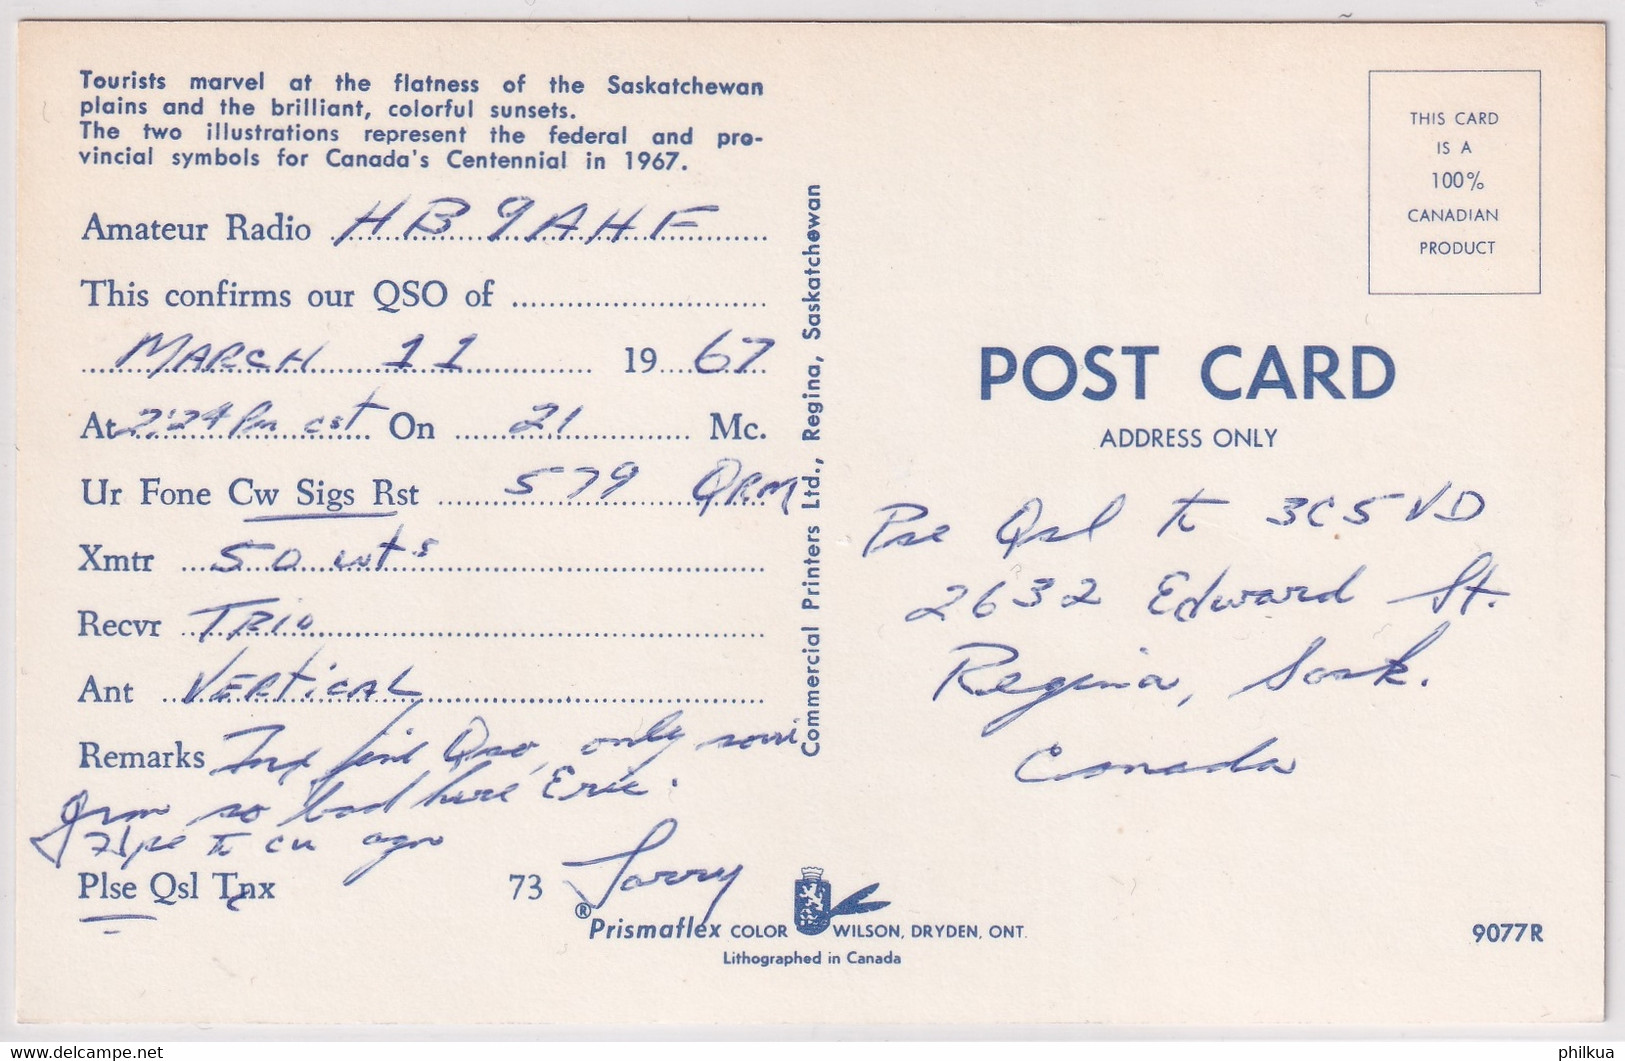 Tourists marvel at the flatness of the Saskatchewan
plains and the brilliant, colorful sunsets.
The two illustrations represent the federal and pro-
vincial symbols for Canada's Centennial in 1967.
Amateur Radio HB9AHF
This confirms our QSO of
MARCH 11 1967
At 2:24 Pm cst On 21 Mc.
Ur Fone Cw Sigs Rst 579 QRM
Xmtr 50 wts
Recvr TRIO
Ant VERTICAL
Remarks Tnx fine Qso, only sorri
Qrm so bad here Eric.
hpe to cu agn
Plse Qsl Tnx 73 Larry
® Prismaflex COLOR WILSON, DRYDEN, ONT.
Lithographed in Canada
Commercial Printers Ltd., Regina, Saskatchewan
THIS CARD
IS A
100%
CANADIAN
PRODUCT
POST CARD
ADDRESS ONLY
Pse Qsl to 3C5VD
2632 Edward St.
Regina, Sask.
Canada
9077R
Tourists marvel at the flatness of the Saskatchewan
philkua